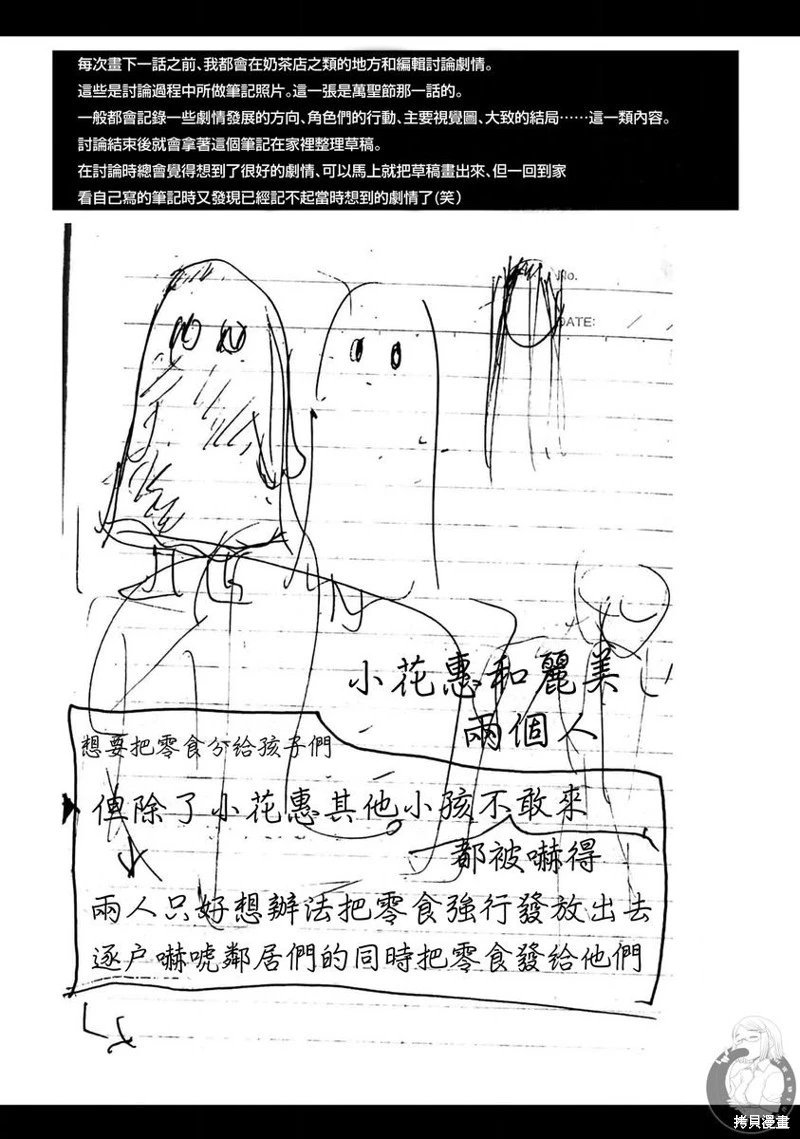 每次畫下一話之前、我都會在奶茶店之類的地方和編輯討論劇情。
這些是討論過程中所做筆記照片。這一張是萬聖節那一話的。
一般都會記錄一些劇情發展的方向、角色們的行動、主要視覺圖、大致的結局⋯⋯這一類內容。
討論結束後就會拿著這個筆記在家裡整理草稿。
在討論時總會覺得想到了很好的劇情、可以馬上就把草稿畫出來、但一回到家
看自己寫的筆記時又發現已經記不起當時想到的劇情了(笑)
NO.
DATE:
小花惠和麗美
兩個人
想要把零食分給孩子們
但除了小花惠其他小孩不敢來
都被嚇得
兩人只好想辦法把零食強行發放出去
逐户嚇唬鄰居們的同時把零食發給他們
拷貝漫畫